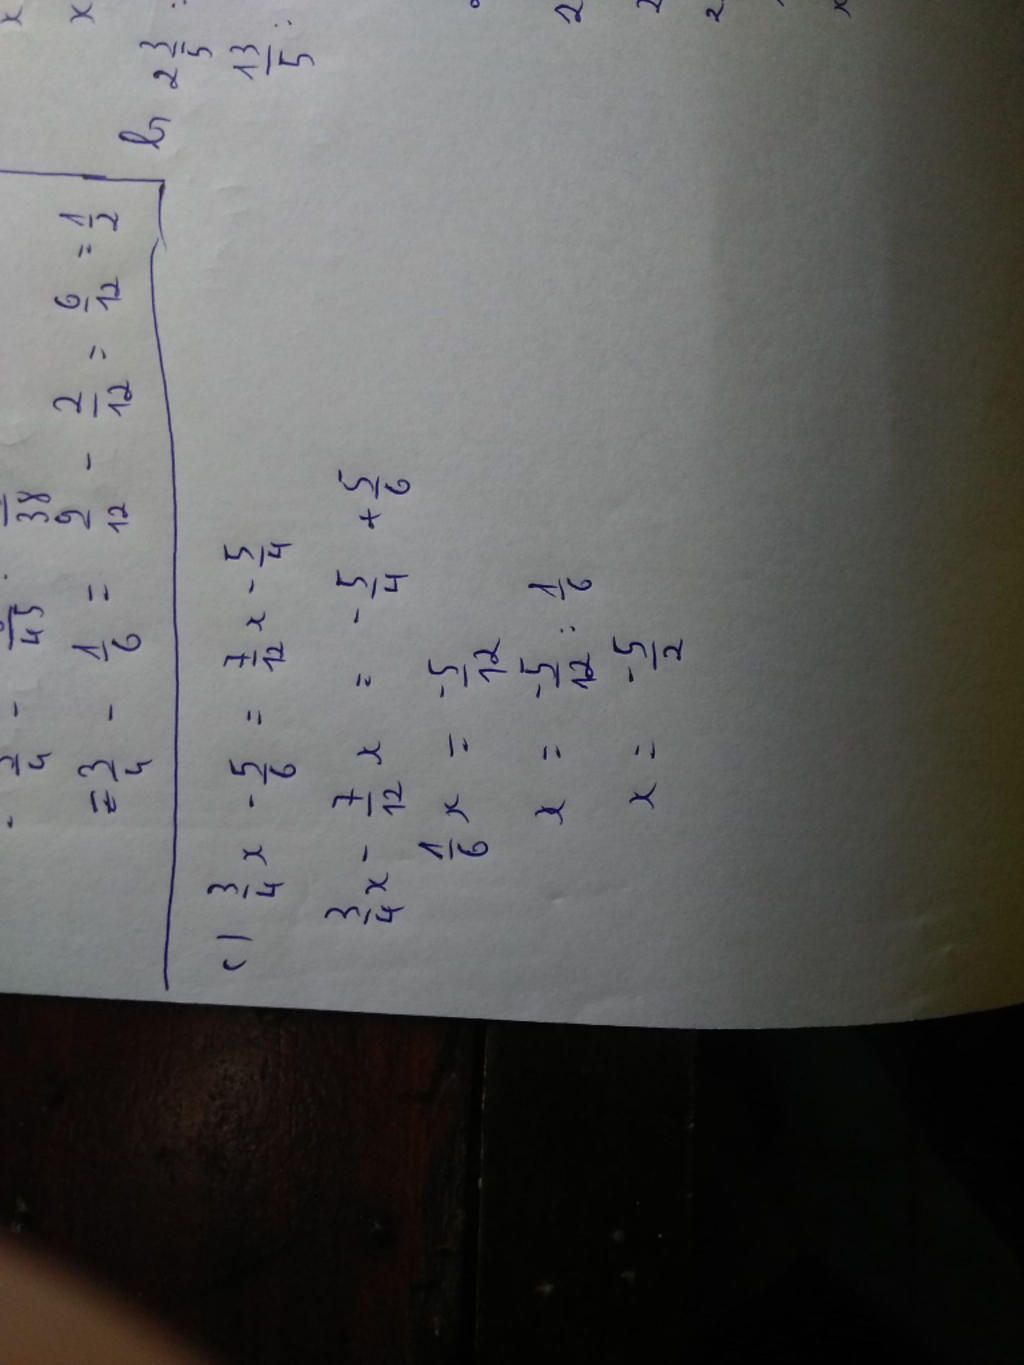 = 3/4 - 1/6 = 9/12 - 2/12 = 6/12 = 1/2
c) 3/4 x - 5/6 = 7/12 x - 5/4
3/4 x - 7/12 x = - 5/4 + 5/6
1/6 x = -5/12
x = -5/12 : 1/6
x = -5/2
b, 2 3/5 :
13/5 :